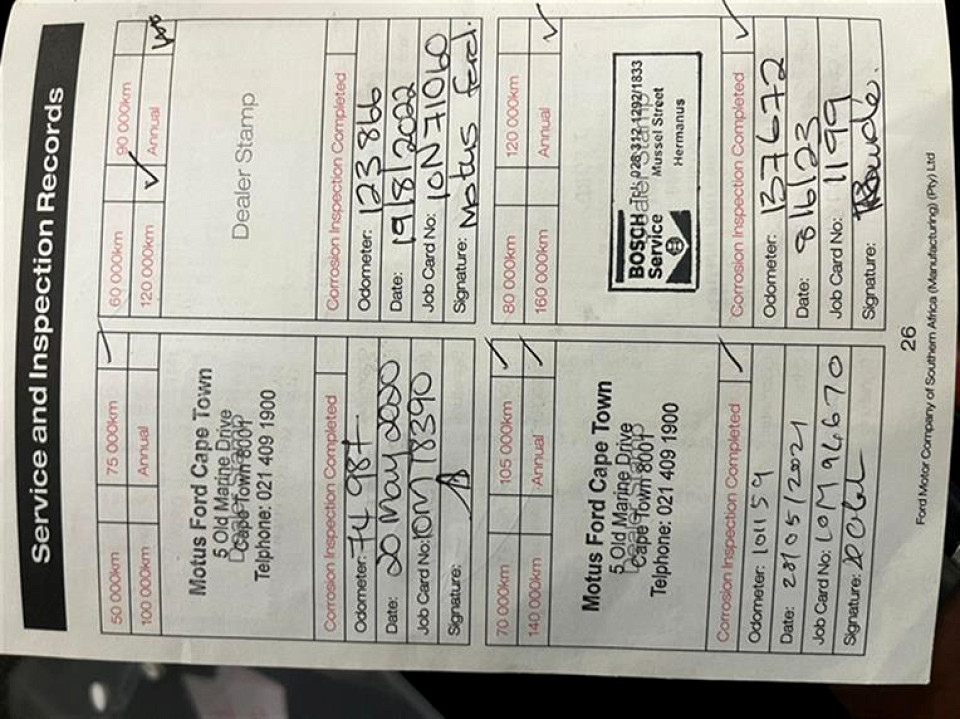 Service and Inspection Records
50 000km 75 000km
100 000km Annual
Motus Ford Cape Town
5 Old Marine Drive
Dealer Stamp
Cape Town 8001
Telphone: 021 409 1900
Corrosion Inspection Completed
Odometer: 74987
Date: 20 May 2020
Job Card No: 10M78390
Signature:
60 000km 90 000km
120 000km Annual
Dealer Stamp
Corrosion Inspection Completed
Odometer: 123866
Date: 19/8/2022
Job Card No: 10N71060
Signature: Motus Ford.
70 000km 105 000km
140 000km Annual
Motus Ford Cape Town
5 Old Marine Drive
Dealer Stamp
Cape Town 8001
Telphone: 021 409 1900
Corrosion Inspection Completed
Odometer: 101159
Date: 28/05/2021
Job Card No: 10M96670
Signature:
80 000km 120 000km
160 000km Annual
BOSCH Tel: 028 312 1292/1833
Service Mussel Street
Hermanus
Dealer Stamp
Corrosion Inspection Completed
Odometer: 137672
Date: 8/6/23
Job Card No: 11199
Signature:
26
Ford Motor Company of Southern Africa (Manufacturing) (Pty) Ltd